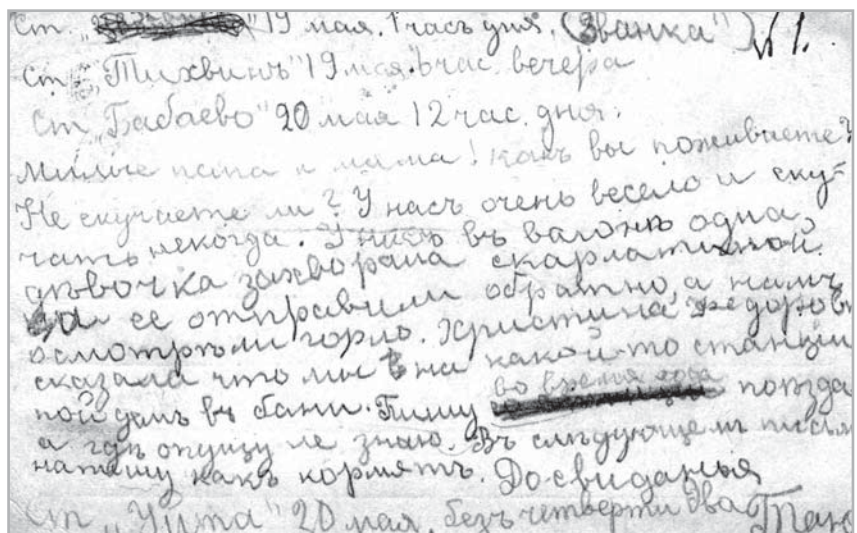 Ст. 19 мая. 1 часъ дня. („Званка“) № 1.
Ст. „Тихвинъ“ 19 мая. 6 час. вечера
Ст. „Бабаево“ 20 мая 12 час. дня.
Милые папа и мама! какъ вы поживаете?
Не скучаете ли? У насъ очень весело и ску-
чать некогда. У насъ въ вагонѣ одна
дѣвочка захворала скарлатиной
ее отправили обратно, а намъ
осмотрѣли горло. Христина Федоровн
сказала что мы на какой-то станціи
пойдемъ въ баню. Пишу во время хода поѣзда
а гдѣ опущу не знаю. Въ слѣдующемъ письм
напишу какъ кормятъ. Досвиданья
Ст. „Уйта“ 20 мая, безъ четверти два Таня